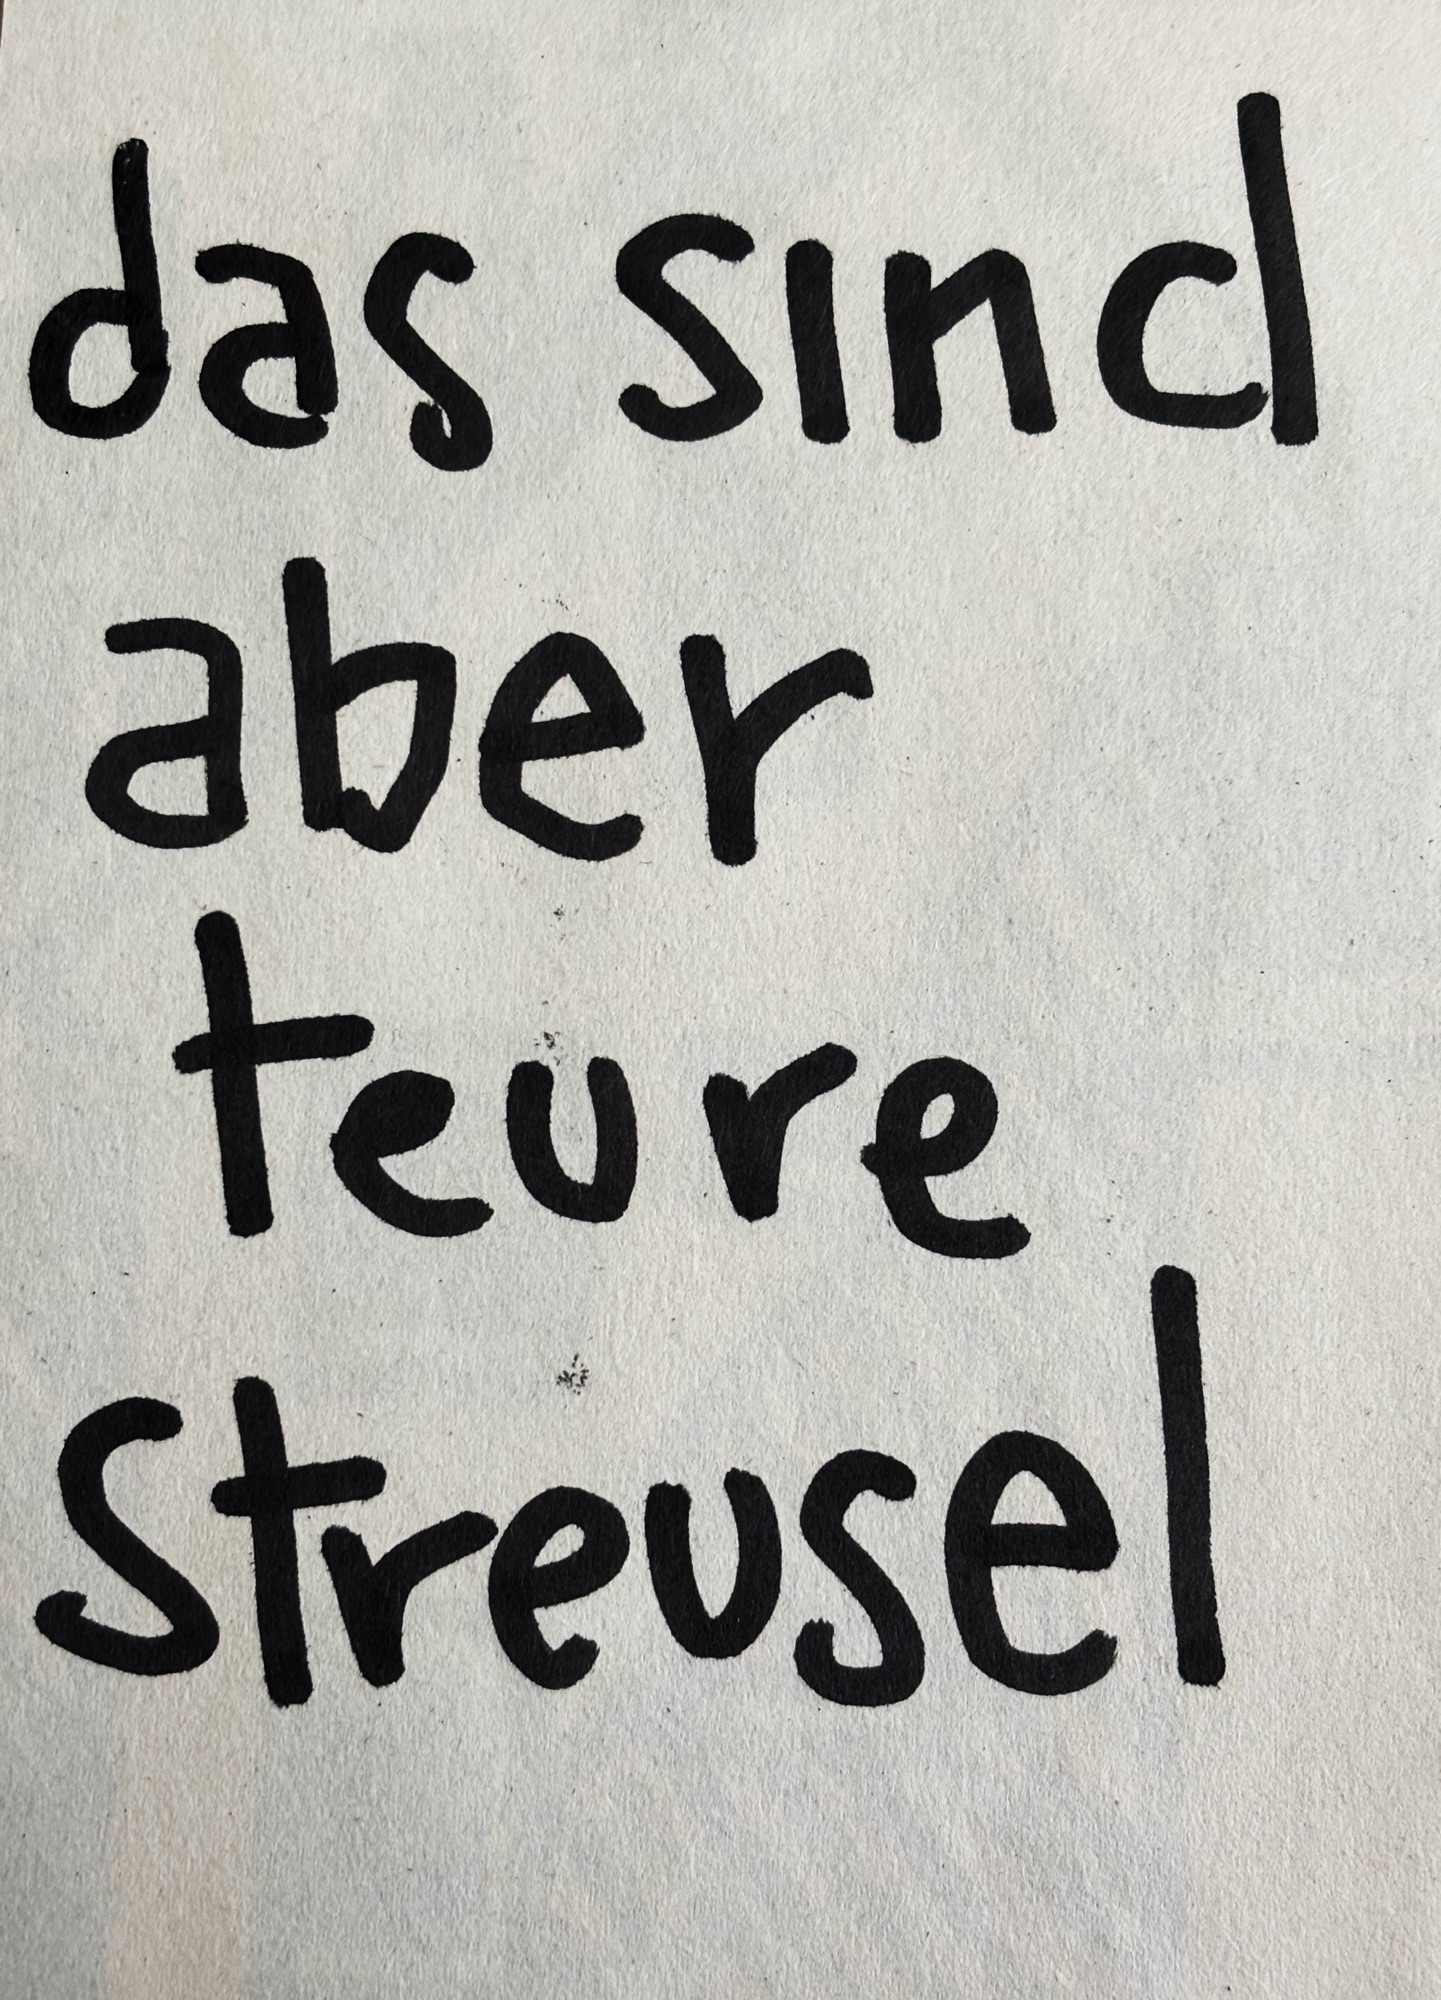 das sind
aber
teure
Streusel